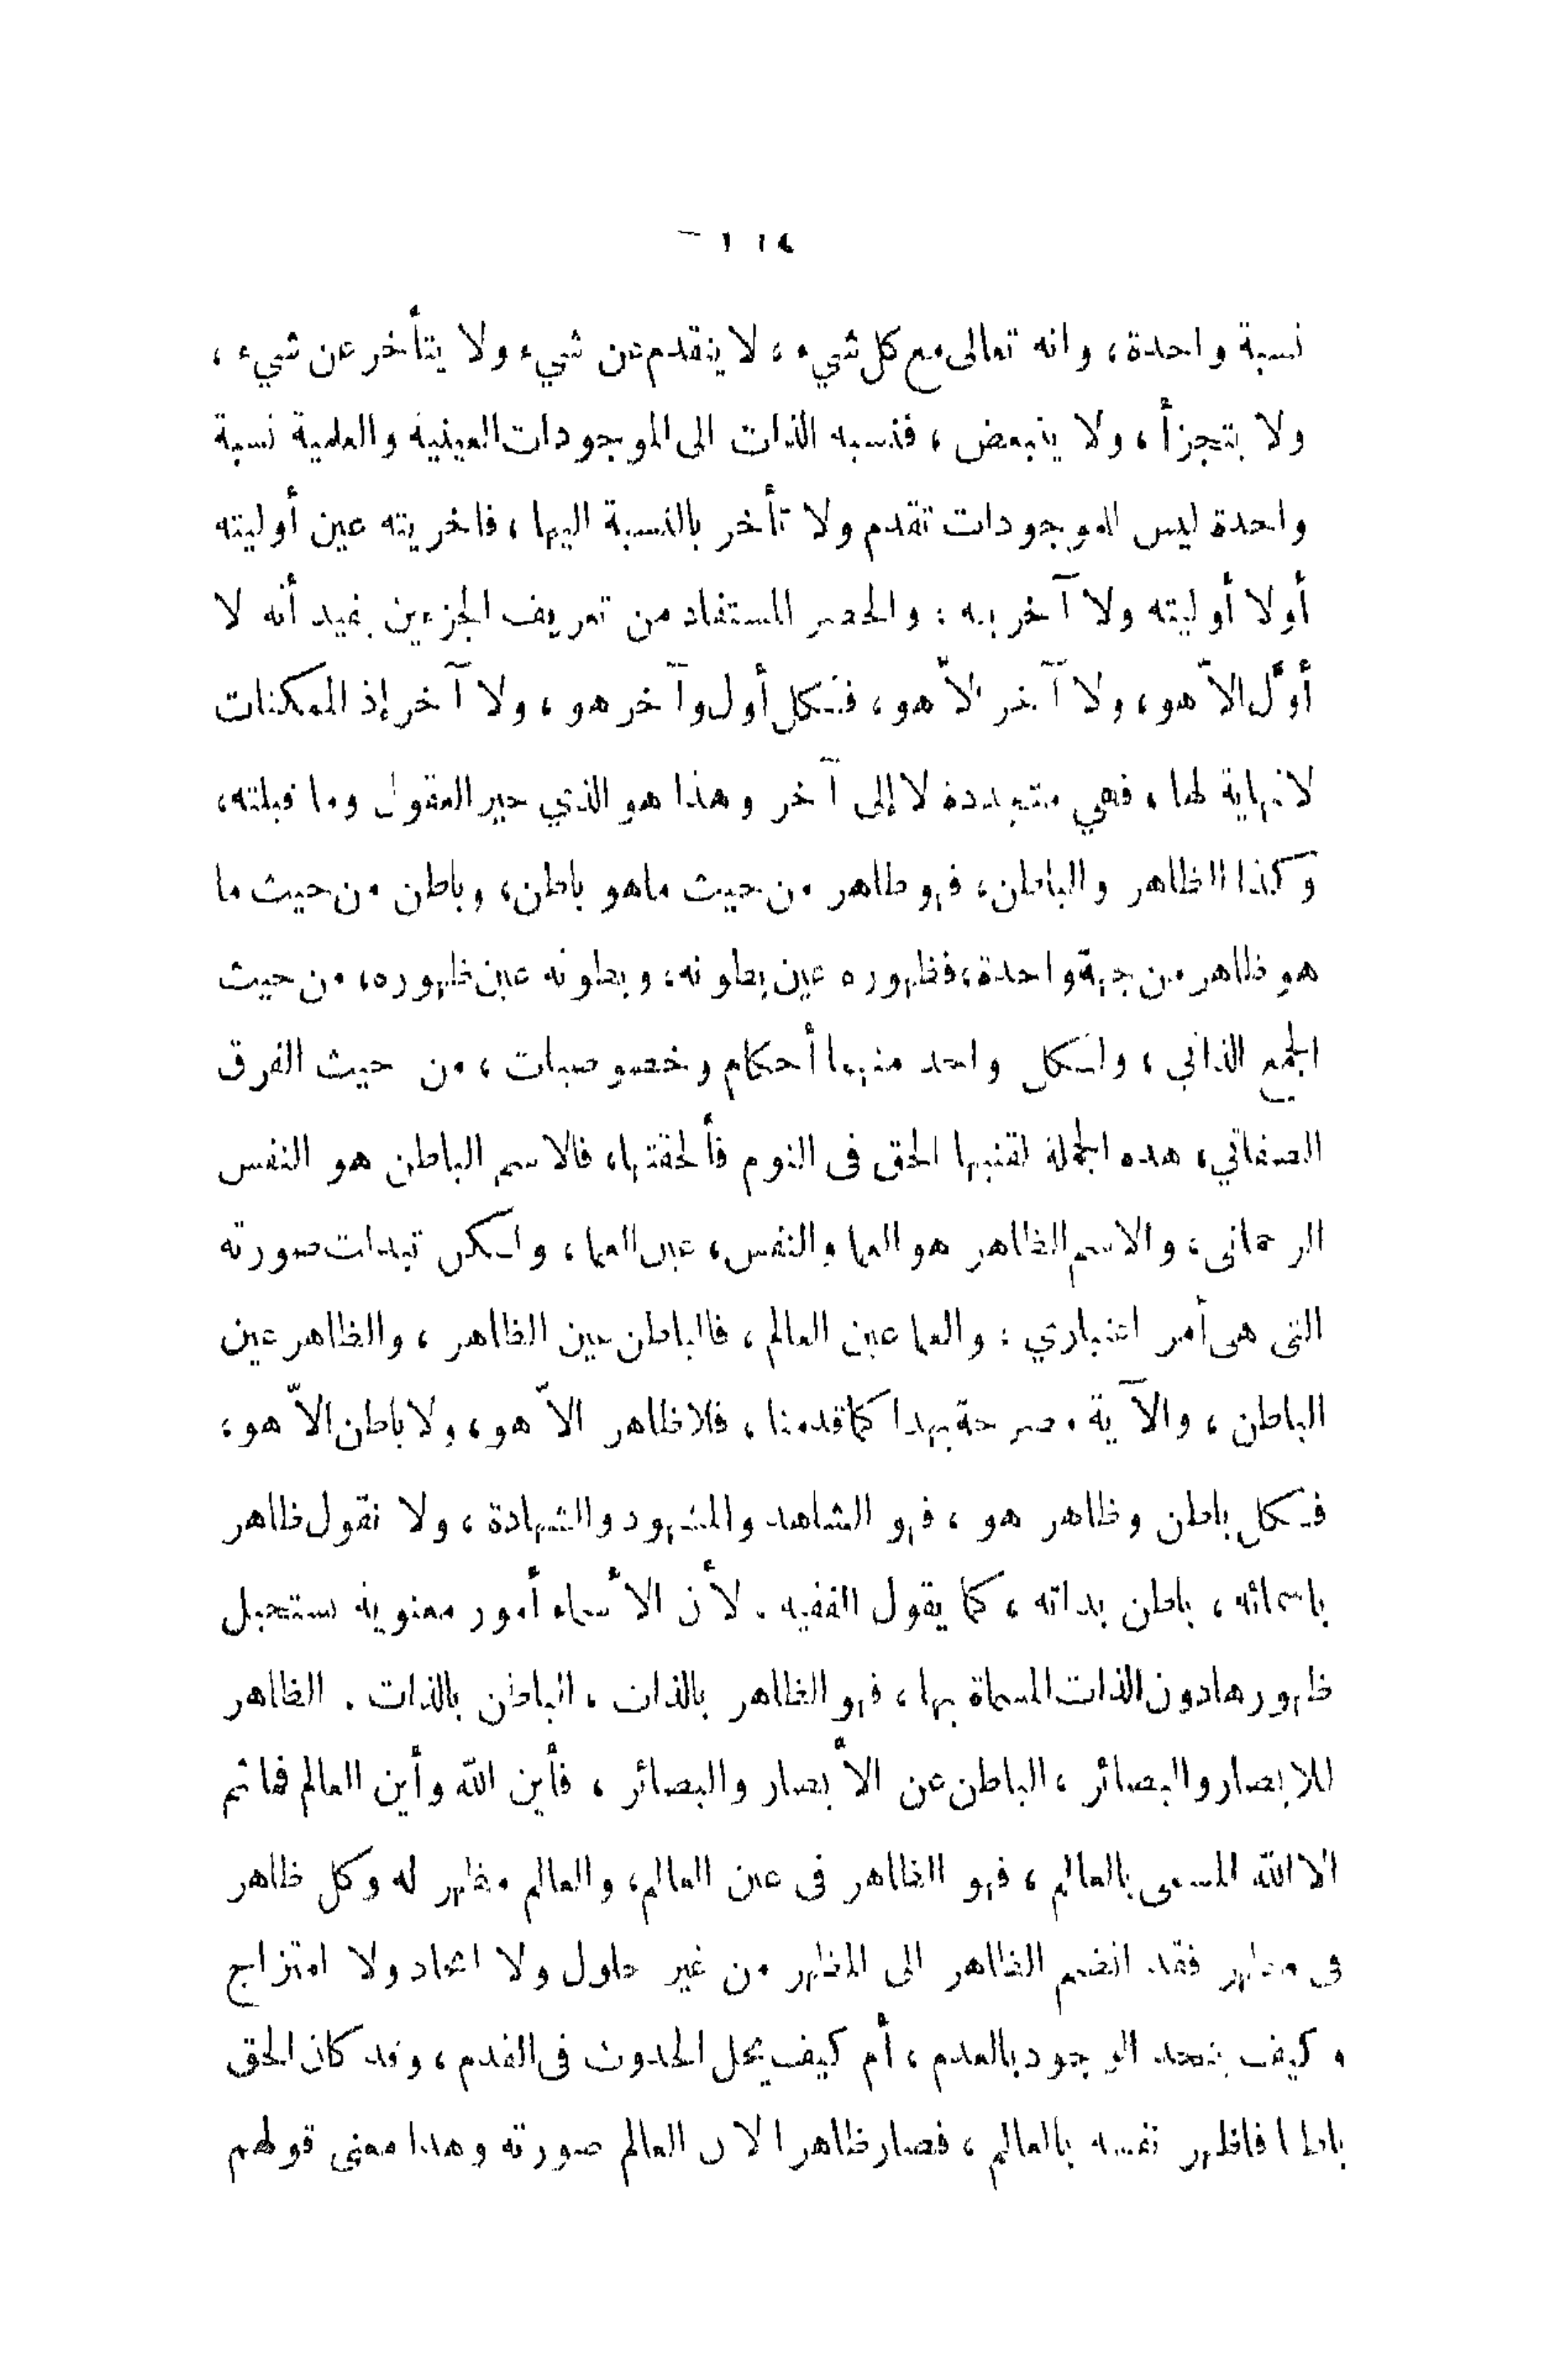 نسبة واحدة، وانه تعالى مع كل شيء، لا يتقدم عن شيء ولا يتأخر عن شيء،
ولا يتجزأ، ولا يتبعض، فنسبة الذات الى الموجودات العينية والعلمية نسبة
واحدة ليس للموجودات تقدم ولا تأخر بالنسبة اليها، فاخريته عين أوليته
أولا أوليته ولا آخريه: والحصر المستفاد من تعريف الجزءين يفيد أنه لا
أوّل الاّ هو، ولا آخر الاّ هو، فكل أول وآخر هو، ولا آخر إذ الممكنات
لانهاية لها، فهي متجددة لا إلى آخر وهذا هو الذي حير العقول وما قبلته،
وكذا الظاهر والباطن، فهو ظاهر من حيث ماهو باطن، وباطن من حيث ما
هو ظاهر من جهة واحدة، فظهوره عين بطونه، وبطونه عين ظهوره، من حيث
الجمع الذاتي، ولكل واحد منهما أحكام وخصوصيات، من حيث الفرق
الصفاتي، هذه الجملة لقنيها الحق فى النوم فألحقتها، فالاسم الباطن هو النفس
الرحمانى، والاسم الظاهر هو العما والنفس، عين العما، ولكن تبدلت صورته
التى هى أمر اعتباري: والعما عين العالم، فالباطن عين الظاهر، والظاهر عين
الباطن، والآية مصرحة بهذا كما قدمنا، فلا ظاهر الاّ هو، ولا باطن الاّ هو،
فكل باطن وظاهر هو، فهو الشاهد والمشهود والشهادة، ولا نقول ظاهر
باسمائه، باطن بذاته، كما يقول الفقيه. لأن الأسماء أمور معنوية يستحيل
ظهورها دون الذات المسماة بها، فهو الظاهر بالذات، الباطن بالذات. الظاهر
للابصار والبصائر، الباطن عن الأبصار والبصائر، فأين الله وأين العالم فما ثم
الا الله المسمى بالعالم، فهو الظاهر فى عين العالم، والعالم مظهر له وكل ظاهر
فى مظهر فقد انضم الظاهر الى المظهر من غير حلول ولا اتحاد ولا امتزاج
وكيف يتحد الوجود بالعدم، أم كيف يحل الحدوث فى القدم، وقد كان الحق
باطنا فاظهر نفسه بالعالم، فصار ظاهرا لان العالم صورته وهذا معنى قولهم